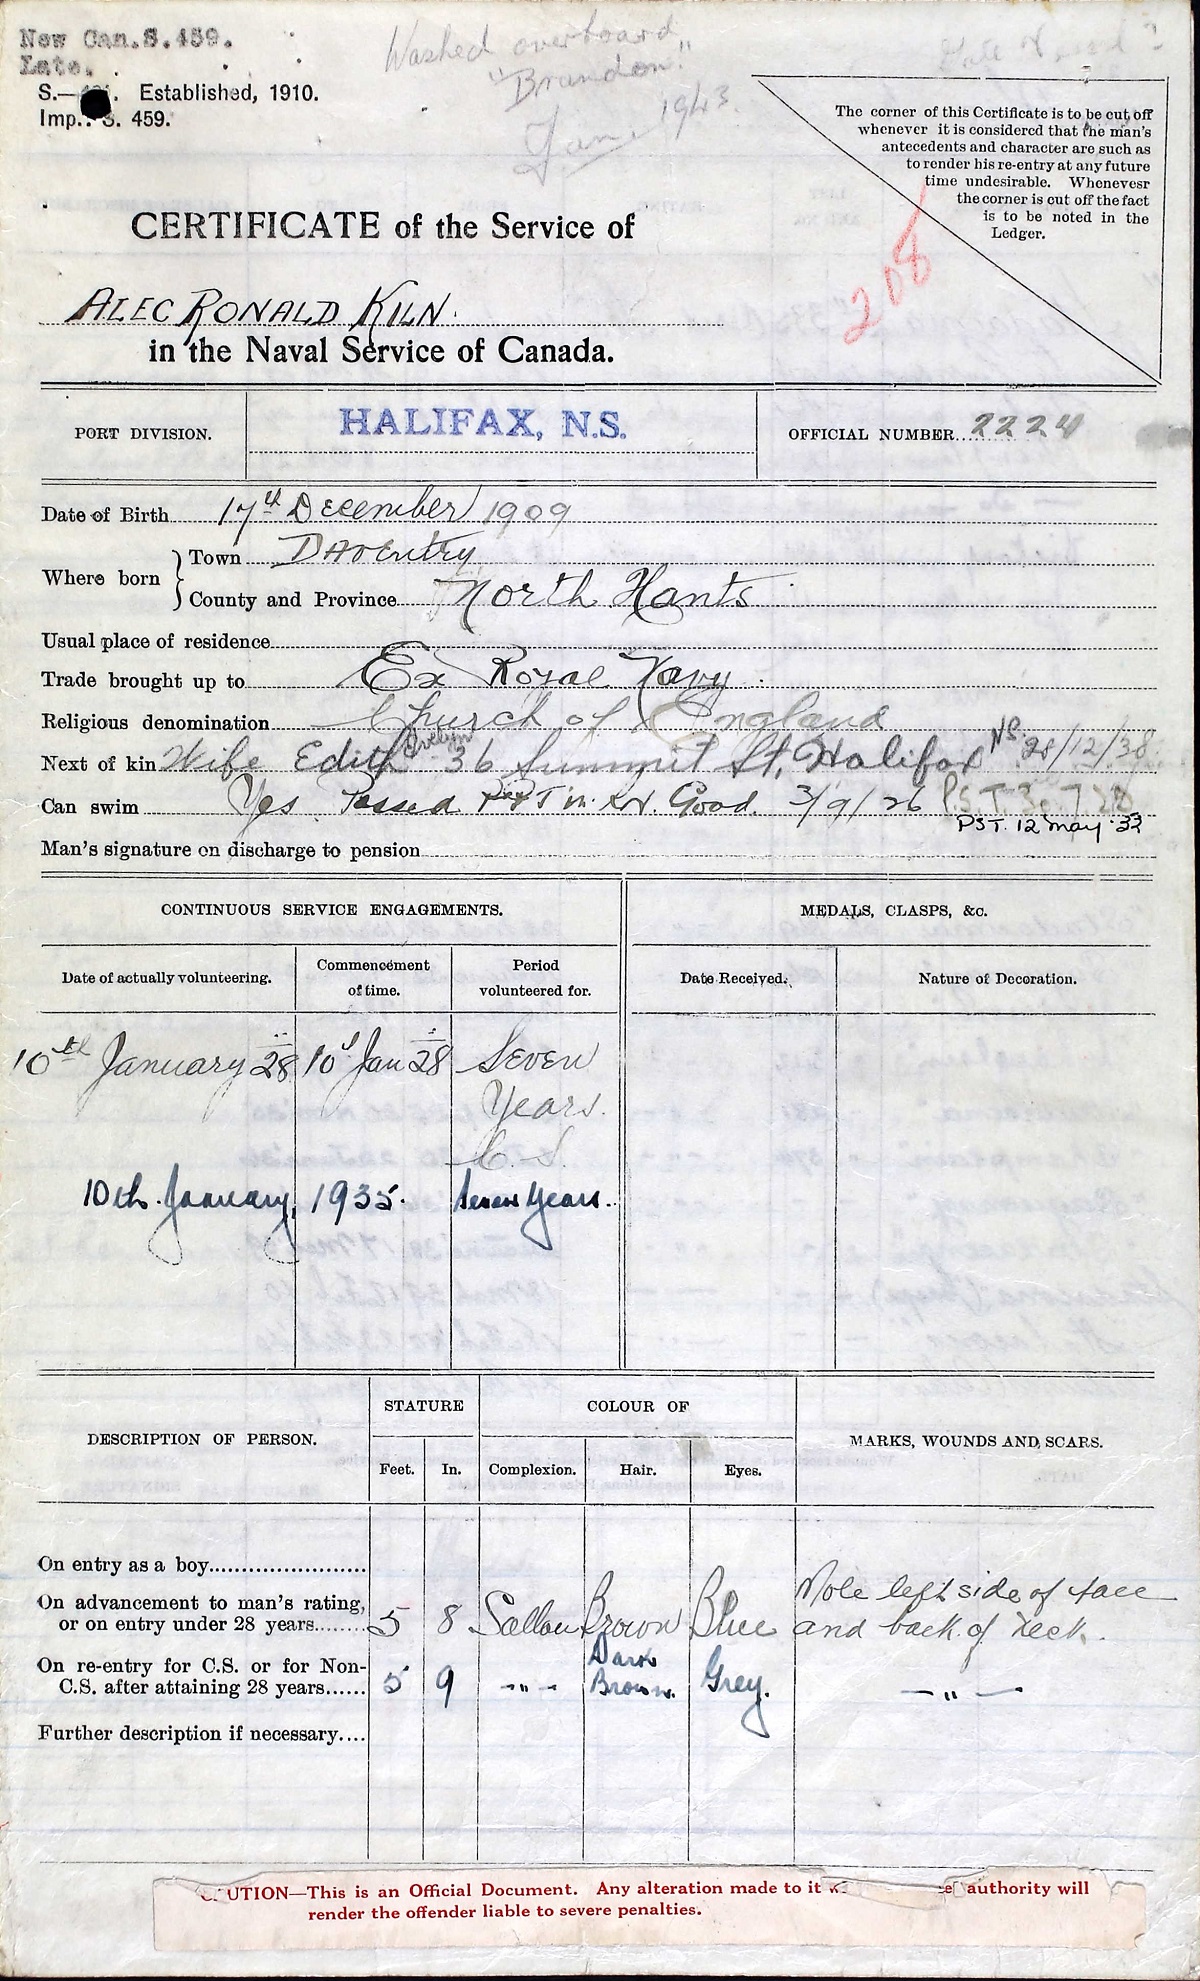 New Can.S.459.
Late.
S.— Established, 1910.
Imp.: S. 459.
Washed overboard
"Brandon"
Jan 1943.
The corner of this Certificate is to be cut off
whenever it is considered that the man's
antecedents and character are such as
to render his re-entry at any future
time undesirable. Whenevesr
the corner is cut off the fact
is to be noted in the
Ledger.
208
CERTIFICATE of the Service of
ALEC RONALD KILN.
in the Naval Service of Canada.
PORT DIVISION. HALIFAX, N.S. OFFICIAL NUMBER 2224
Date of Birth 17th December 1909
Where born Town Daventry
County and Province North Hants
Usual place of residence
Trade brought up to Ex Royal Navy.
Religious denomination Church of England
Next of kin Wife Edith Evelyn 36 Summit St, Halifax NS. 28/12/38
Can swim Yes. Passed in R.N. Good. 3/9/26 P.S.T. 30.7.28
PST. 12 May 33
Man's signature on discharge to pension
CONTINUOUS SERVICE ENGAGEMENTS. MEDALS, CLASPS, &c.
Date of actually volunteering. Commencement of time. Period volunteered for. Date Received. Nature of Decoration.
10th January 28 10th Jan 28 Seven
Years.
C.S.
10th January, 1935. Seven Years.
DESCRIPTION OF PERSON. STATURE COLOUR OF MARKS, WOUNDS AND SCARS.
Feet. In. Complexion. Hair. Eyes.
On entry as a boy
On advancement to man's rating, or on entry under 28 years 5 8 Sallow Brown Blue Mole left side of face
and back of neck.
On re-entry for C.S. or for Non-C.S. after attaining 28 years 5 9 -"- Dark Brown. Grey. -"-
Further description if necessary
CAUTION—This is an Official Document. Any alteration made to it authority will
render the offender liable to severe penalties.